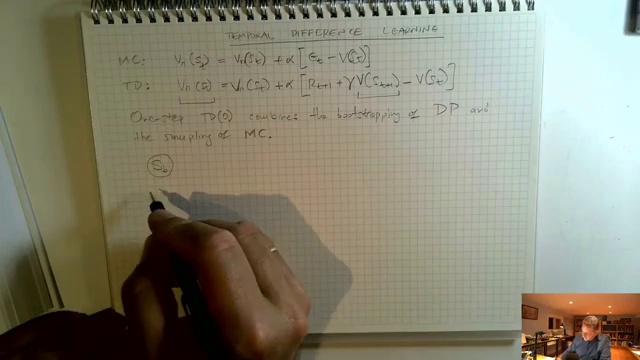 TEMPORAL DIFFERENCE LEARNING
MC: Vπ(St) = Vπ(St) + α [Gt − V(St)]
TD: Vπ(St) = Vπ(St) + α [Rt+1 + γV(St+1) − V(St)]
One-step TD(0) combines the bootstrapping of DP and
the sampling of MC.